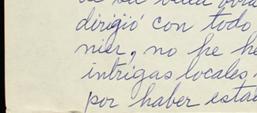 dirigió con todo
nier, no he he
intrigas locales,
por haber esta